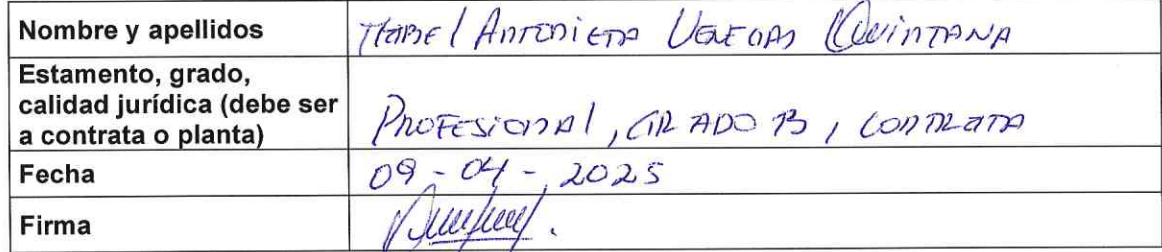 Nombre y apellidos
Antonieta Venegas Quintana
Estamento, grado,
calidad jurídica (debe ser
a contrata o planta)
Profesional, GRADO 13, contrata
Fecha
09-04-2025
Firma